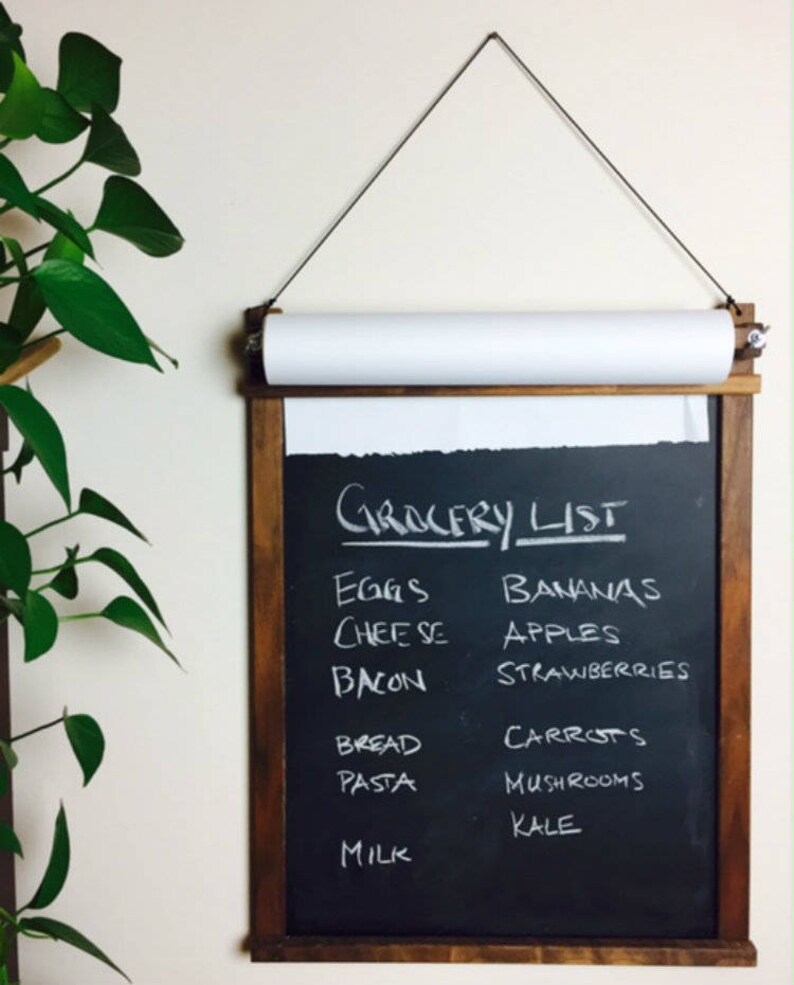 GROCERY LIST
EGGS
CHEESE
BACON
BREAD
PASTA
MILK
BANANAS
APPLES
STRAWBERRIES
CARROTS
MUSHROOMS
KALE